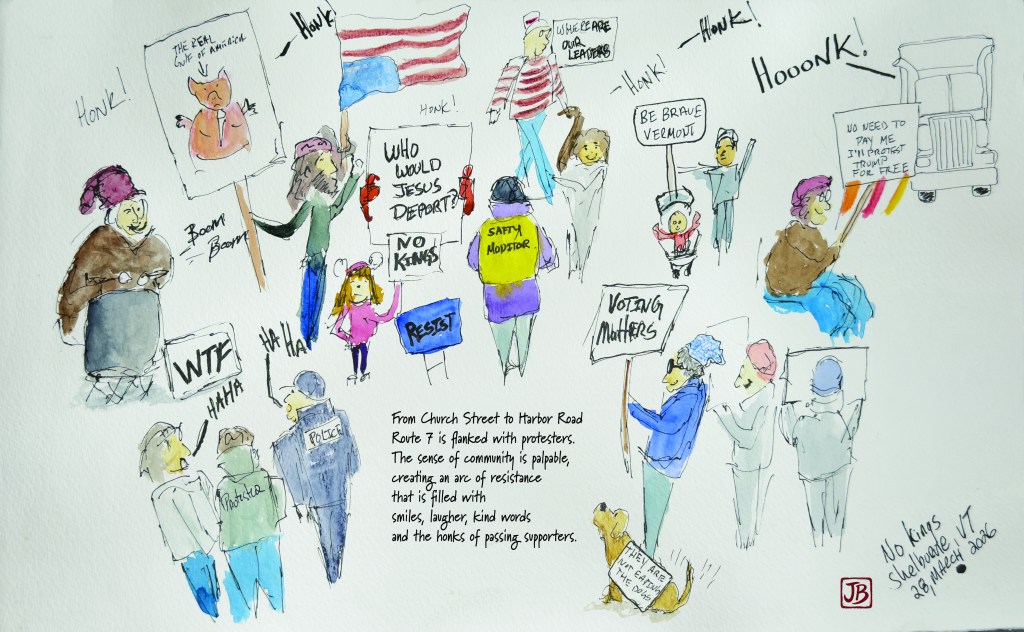 HONK!
THE REAL
GULF OF AMERICA
HONK
HONK!
WHERE ARE
OUR
LEADERS
HONK!
HONK!
HONK!
HOOONK!
BE BRAVE
VERMONT
NO NEED TO
PAY ME
I'M PROTEST
TRUMP
FOR FREE
WHO
WOULD
JESUS
DEPORT?
NO
KINGS
SAFTY
MODITOR
BOOM
BOOM
RESIST
VOTING
MATTERS
WTF
HA HA
HAHA
POLICE
Protector
From Church Street to Harbor Road
Route 7 is flanked with protesters.
The sense of community is palpable,
creating an arc of resistance
that is filled with
smiles, laugher, kind words
and the honks of passing supporters.
THEY ARE
NOT EATING
THE DOGS
No Kings
Shelburne, VT
28, March 2026
JB